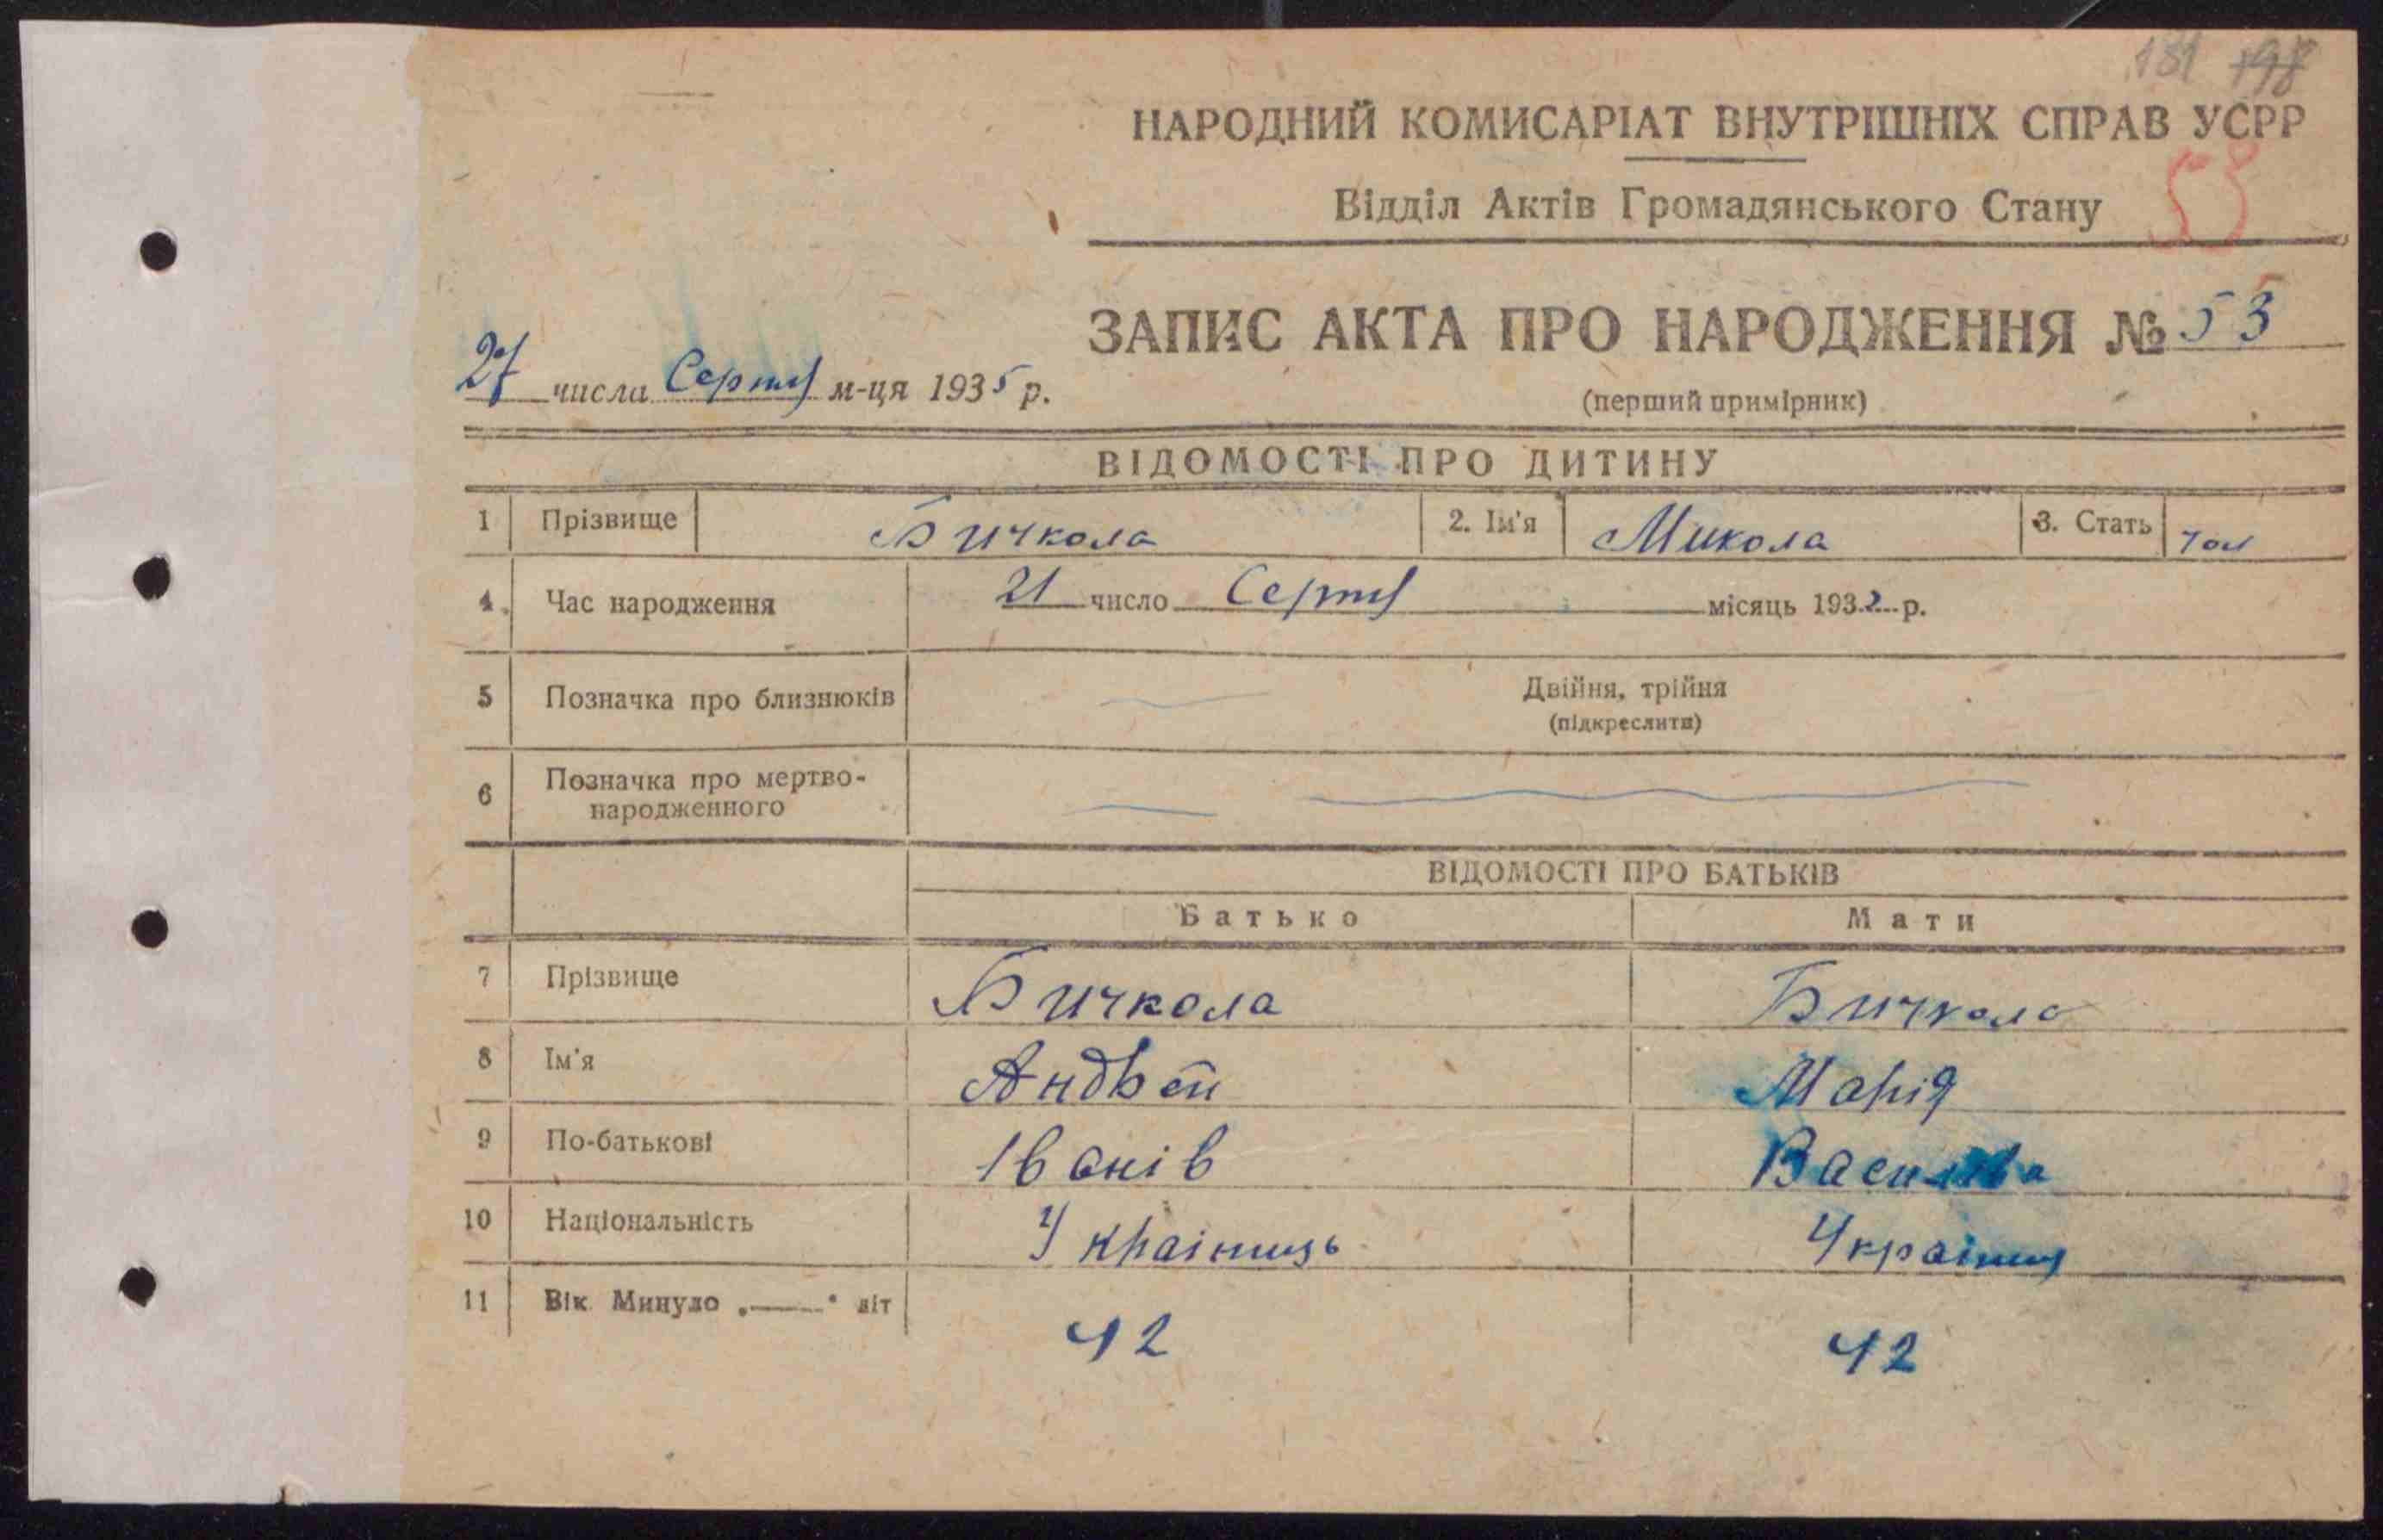 181 198
НАРОДНИЙ КОМИСАРІАТ ВНУТРІШНІХ СПРАВ УСРР
Відділ Актів Громадянського Стану
53
ЗАПИС АКТА ПРО НАРОДЖЕННЯ № 53
27 числа Серпня м-ця 1935 р.
(перший примірник)
ВІДОМОСТІ ПРО ДИТИНУ
1 Прізвище Бичкола 2. Ім'я Микола 3. Стать чол
4. Час народження 21 число Серпня місяць 1932 р.
5 Позначка про близнюків Двійня, трійня
(підкреслити)
6 Позначка про мертво-
народженного
ВІДОМОСТІ ПРО БАТЬКІВ
Батько Мати
7 Прізвище Бичкола Бичкола
8 Ім'я Андрей Марія
9 По-батькові Іванів
10 Національність Українець Українка
11 Вік Минуло „——“ літ 42 42